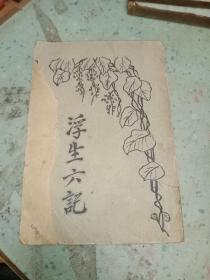 浮生六記